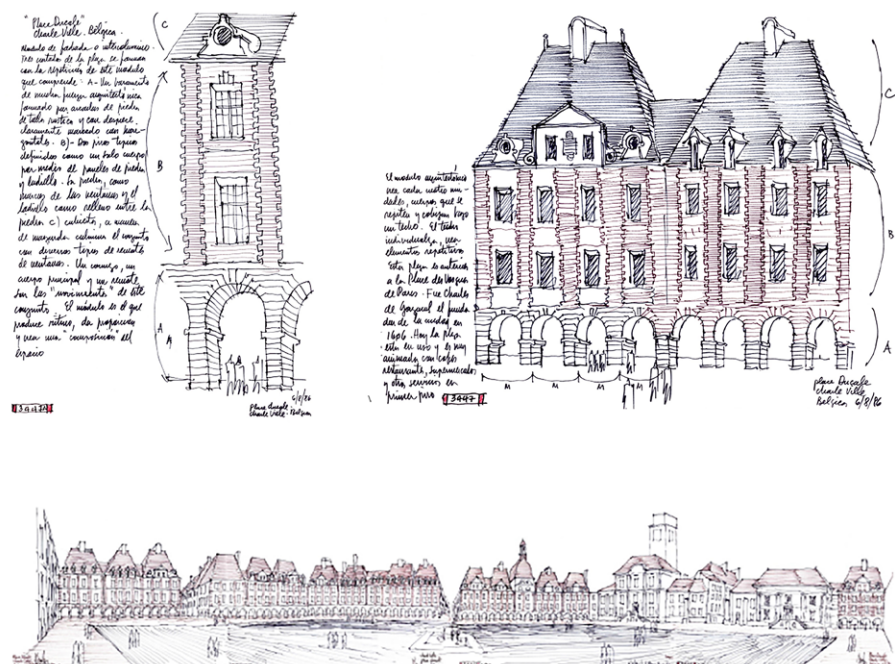 "Place Ducale"
Charle Ville. Bélgica.
Modulo de fachada o intercolumnio.
Tres costados de la plaza se forman
con la repetición de este modulo
que comprende: A- Un basamento
de mucha fuerza arquitectonica
formado por arcadas de piedra
de talla rustica y con despiece
claramente marcado con hori-
zontales. B)- Dos pisos tipicos
definidos como un solo cuerpo
por medio de paneles de piedra
y ladrillo. En piedra, como
marcos de las ventanas y el
ladrillo como relleno entre la
piedra C) cubierta, a manera
de mansarda culmina el conjunto
con diversos tipos de remate
de ventanas. Un cuerpo, un
cuerpo principal y un remate
son los "movimientos" de este
conjunto. El módulo es el que
produce ritmo, da proporcion
y crea una composicion del
espacio
C
B
A
6/8/86
place ducale
charle Ville. Belgica
El modulo arquitectónico
crea cada cuatro uni-
dades, cuerpos que se
repiten y cobijan bajo
un techo. El techo
individualiza, crea
elementos repetitivos
Esta plaza es anterior
a la Place des Vosges
de Paris. Fue Charles
de Gonzague el funda-
dor de la ciudad en
1606. Hoy la plaza
esta en uso y es muy
animada con cafés
restaurante, supermercados
y otros servicios en
primer piso
3447
C
B
A
M M M M
place Ducale
charle Ville
Belgica 6/8/86